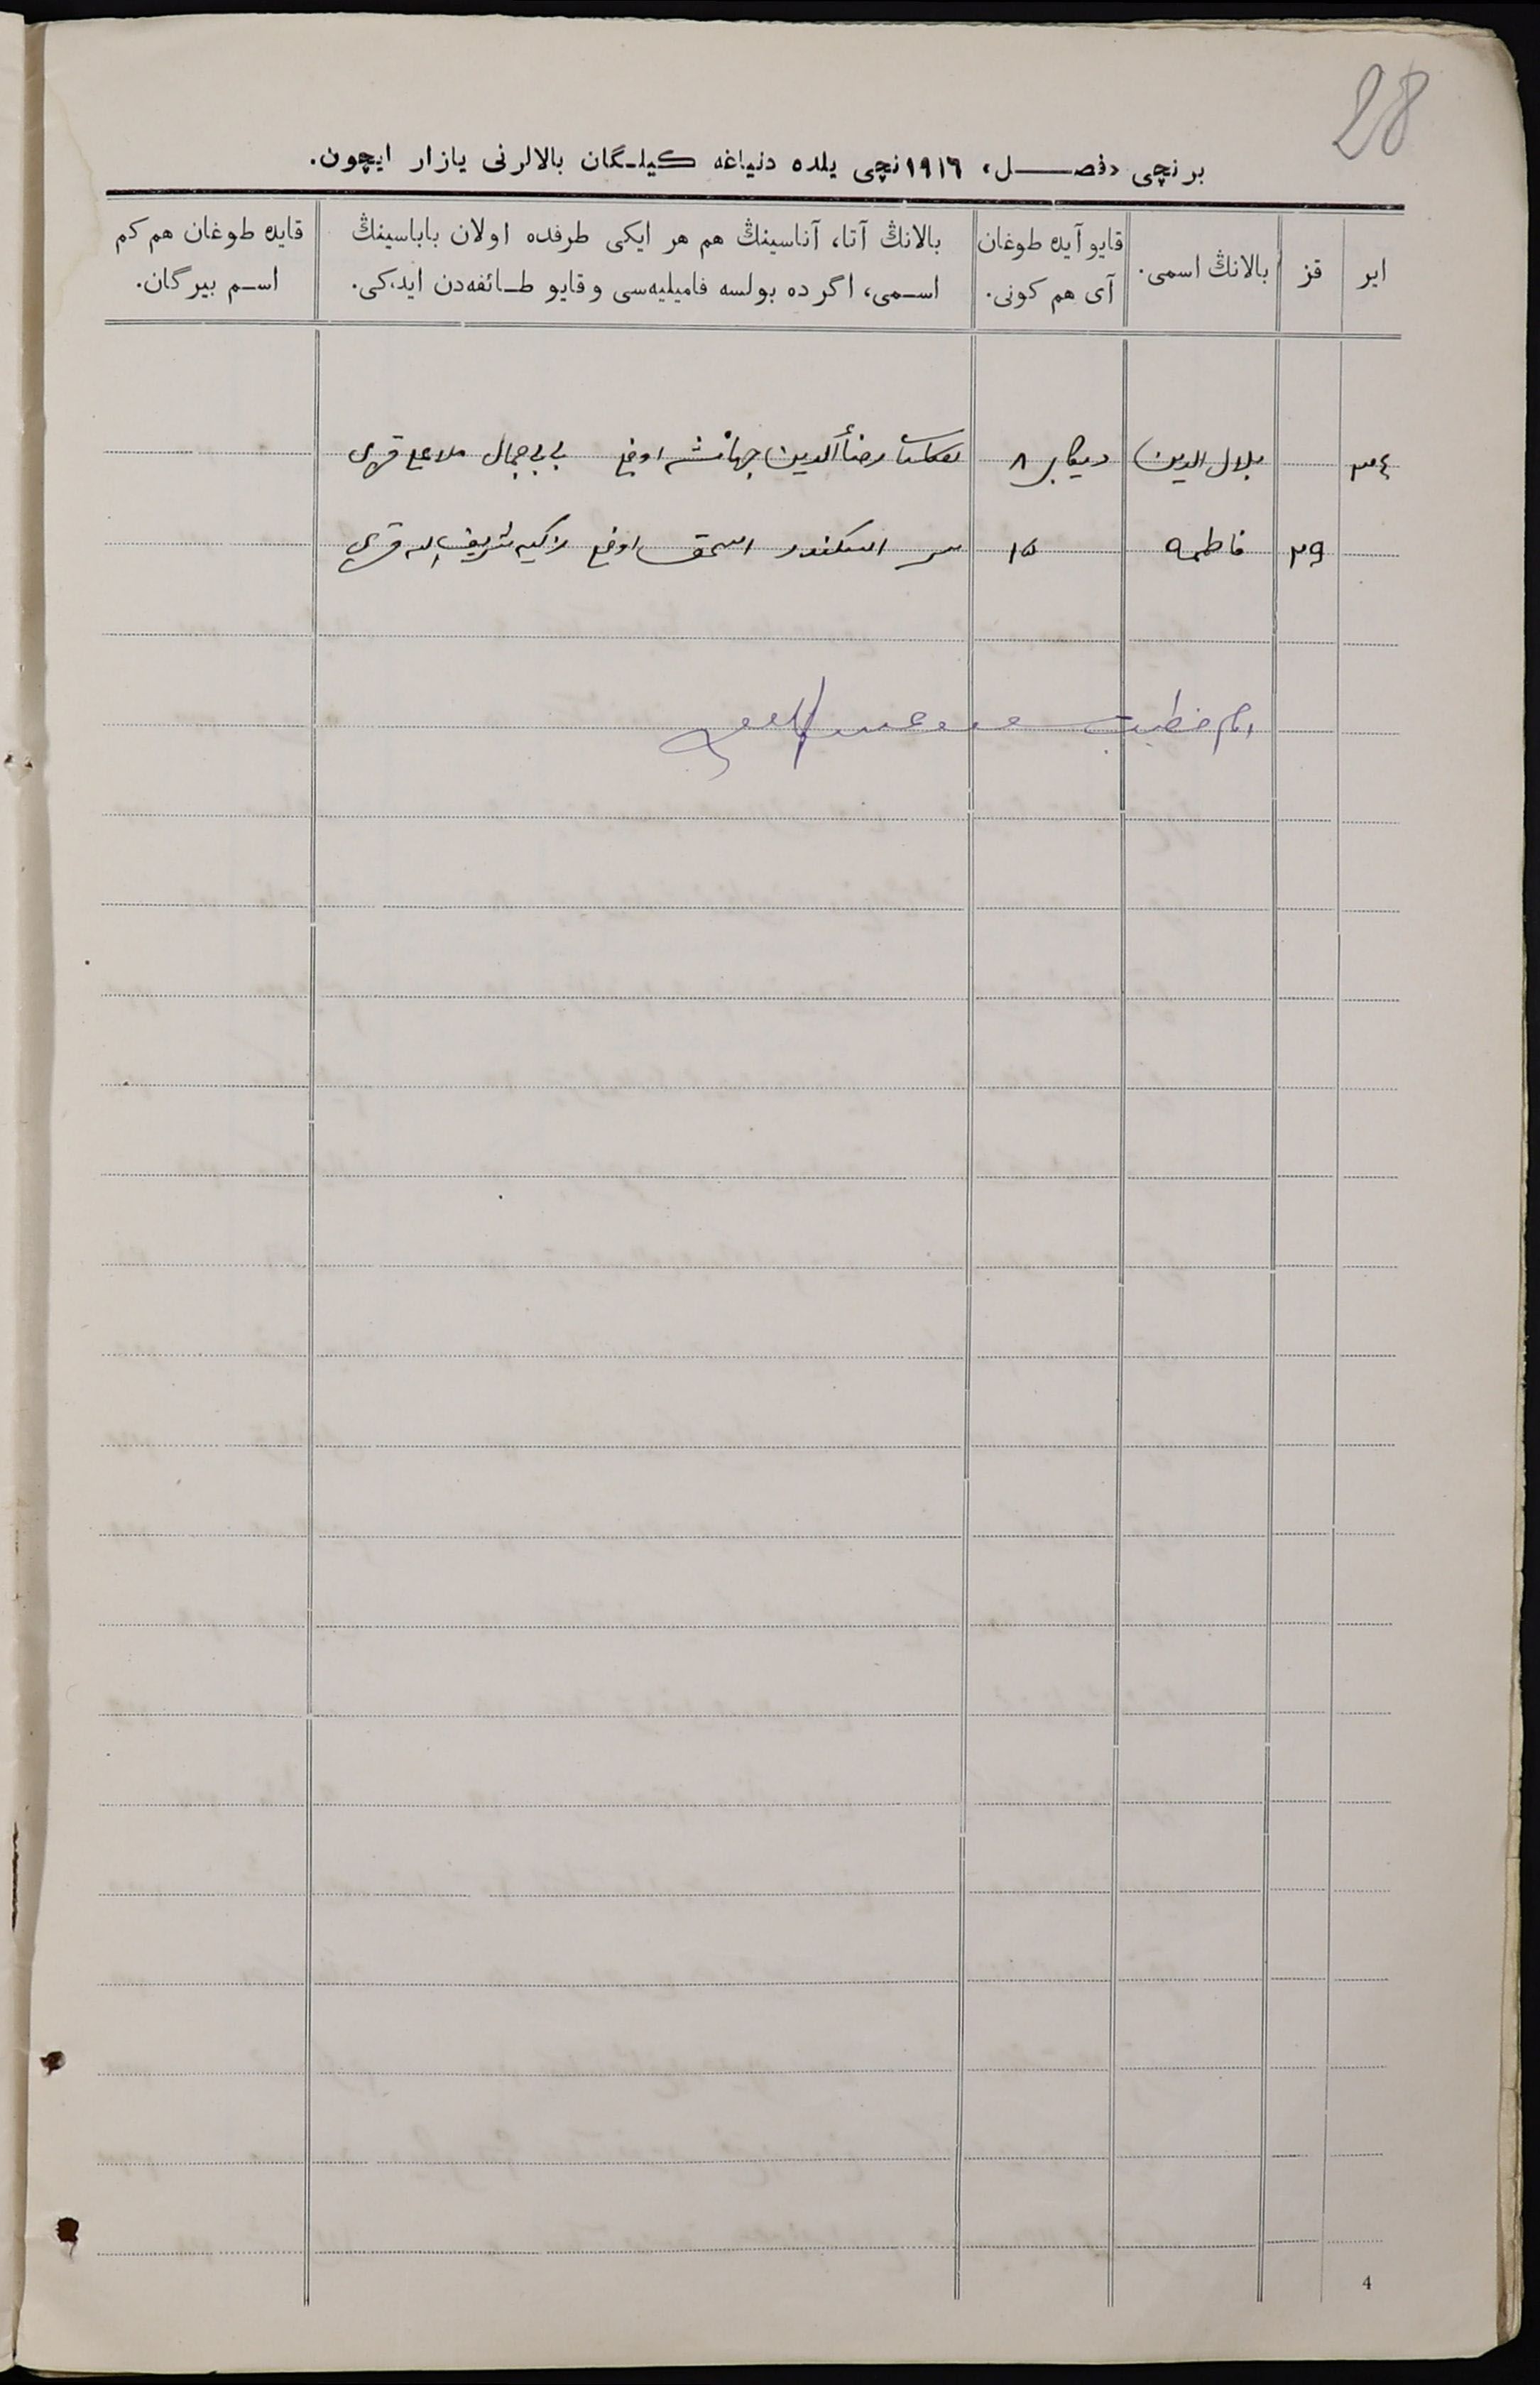 28
برنچی «فصـــل» ۱۹۱٦نچی یلده دنیاغه كیلـگان بالالرنی یازار ایچون.
ایر
قز
بالانڭ اسمی.
قایو آیده طوغان آی هم كونی.
بالانڭ آتا، آناسینڭ هم هر ایكی طرفده اولان باباسینڭ اسـمی، اگر ده بولسه فامیلیه‌سی و قایو طـائفه‌دن ایدكی.
قایده طوغان هم كم اسـم بیرگان.
۳٤ بلال الدین دیكابر ۸ رضاء الدین جهانشه اوغلی بی بی جمال ملا علی قزی
۲۹ فاطمه ۱۵ اسكندر اسحق اوغلی زاكیه شریف الله قزی
امام خطیب
4